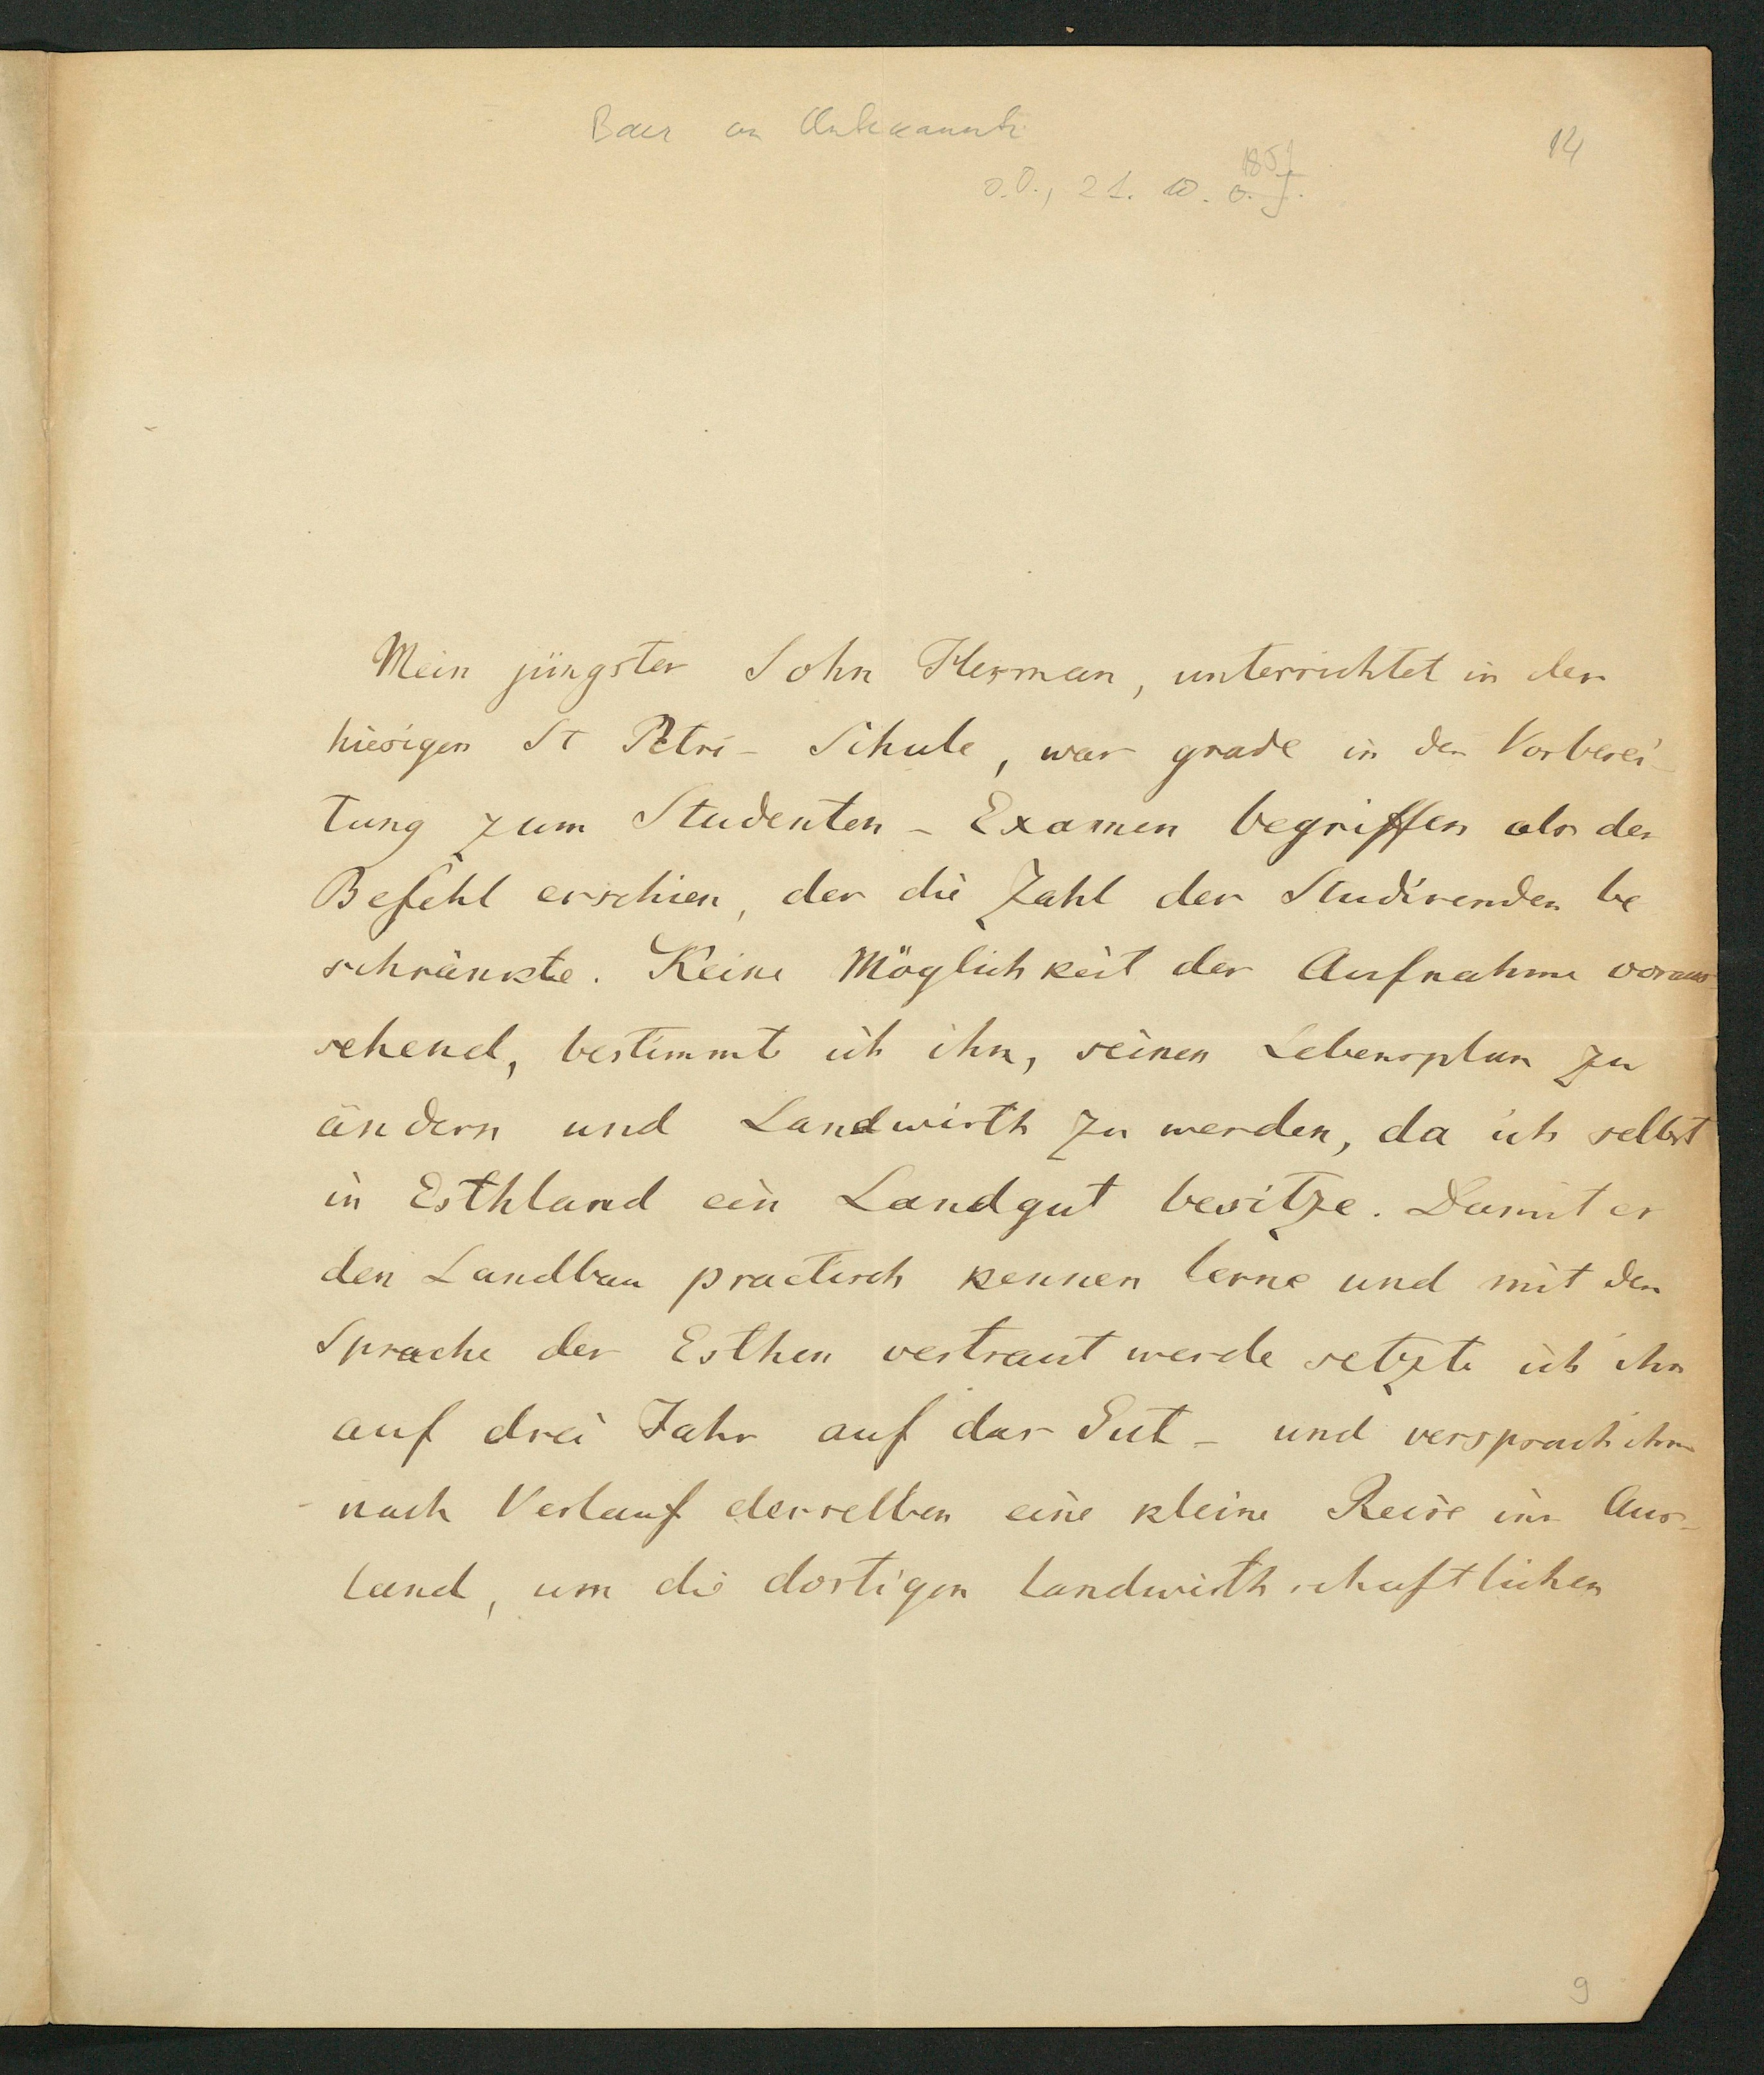 Baer an Unbekannt
14
1851
o.O., 21. 10. o. J.
Mein jüngster Sohn Herman, unterrichtet in der
hiesigen St Petri- Schule, war grade in der Vorberei-
tung zum Studenten- Examen begriffen als der
Befehl erschien, der die Zahl der Studirenden be
schränkte. Keine Möglichkeit der Aufnahme voraus-
sehend, bestimmte ich ihn, seinen Lebensplan zu
ändern und Landwirth zu werden, da ich selbst
in Esthland ein Landgut besitze. Damit er
den Landbau practisch kennen lerne und mit der
Sprache der Esthen vertraut werde setzte ich ihn
auf drei Jahr auf das Gut - und versprach ihm
nach Verlauf derselben eine kleine Reise ins Aus-
land, um die dortigen landwirthschaftlichen
9